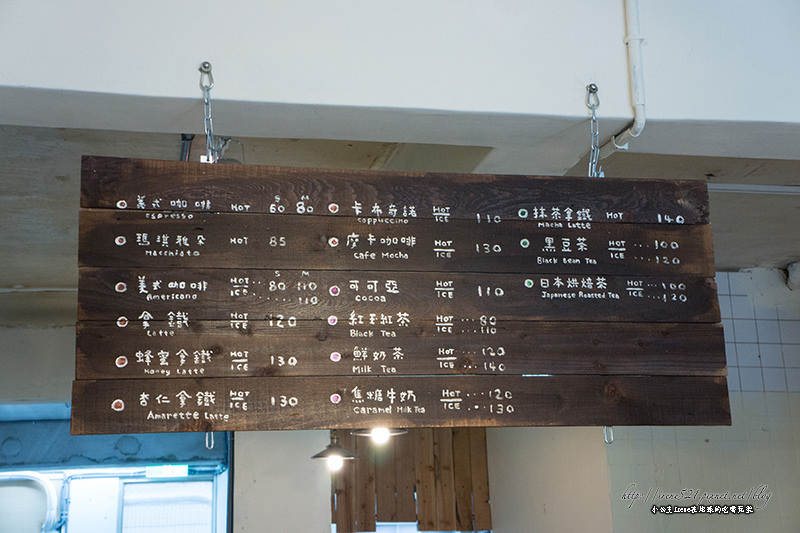 S M
美式咖啡 HOT 60 80
Espresso
瑪琪雅朵 HOT 85
Macchiato
S M
美式咖啡 HOT ·· 80 110
Americano ICE ···· 110
拿鐵 HOT ICE 120
Latte
蜂蜜拿鐵 HOT ICE 130
Honey Latte
杏仁拿鐵 HOT ICE 130
Amarette Latte
卡布奇諾 HOT ICE 110
Cappuccino
摩卡咖啡 HOT ICE 130
Cafe Mocha
可可亞 HOT ICE 110
cocoa
紅玉紅茶 HOT ··· 80
Black Tea ICE ··· 120
鮮奶茶 HOT 120
Milk Tea ICE ·· 140
焦糖牛奶 HOT ··· 120
Caramel Milk Tea ICE ··· 130
抹茶拿鐵 HOT 140
Macha Latte
黑豆茶 HOT ··· 100
Black Bean Tea ICE ··· 120
日本烘焙茶 HOT ··· 100
Japanese Roasted Tea ICE ··· 120
http://irene521.pixnet.net/blog
小公主Irene在地球的吃喝玩樂